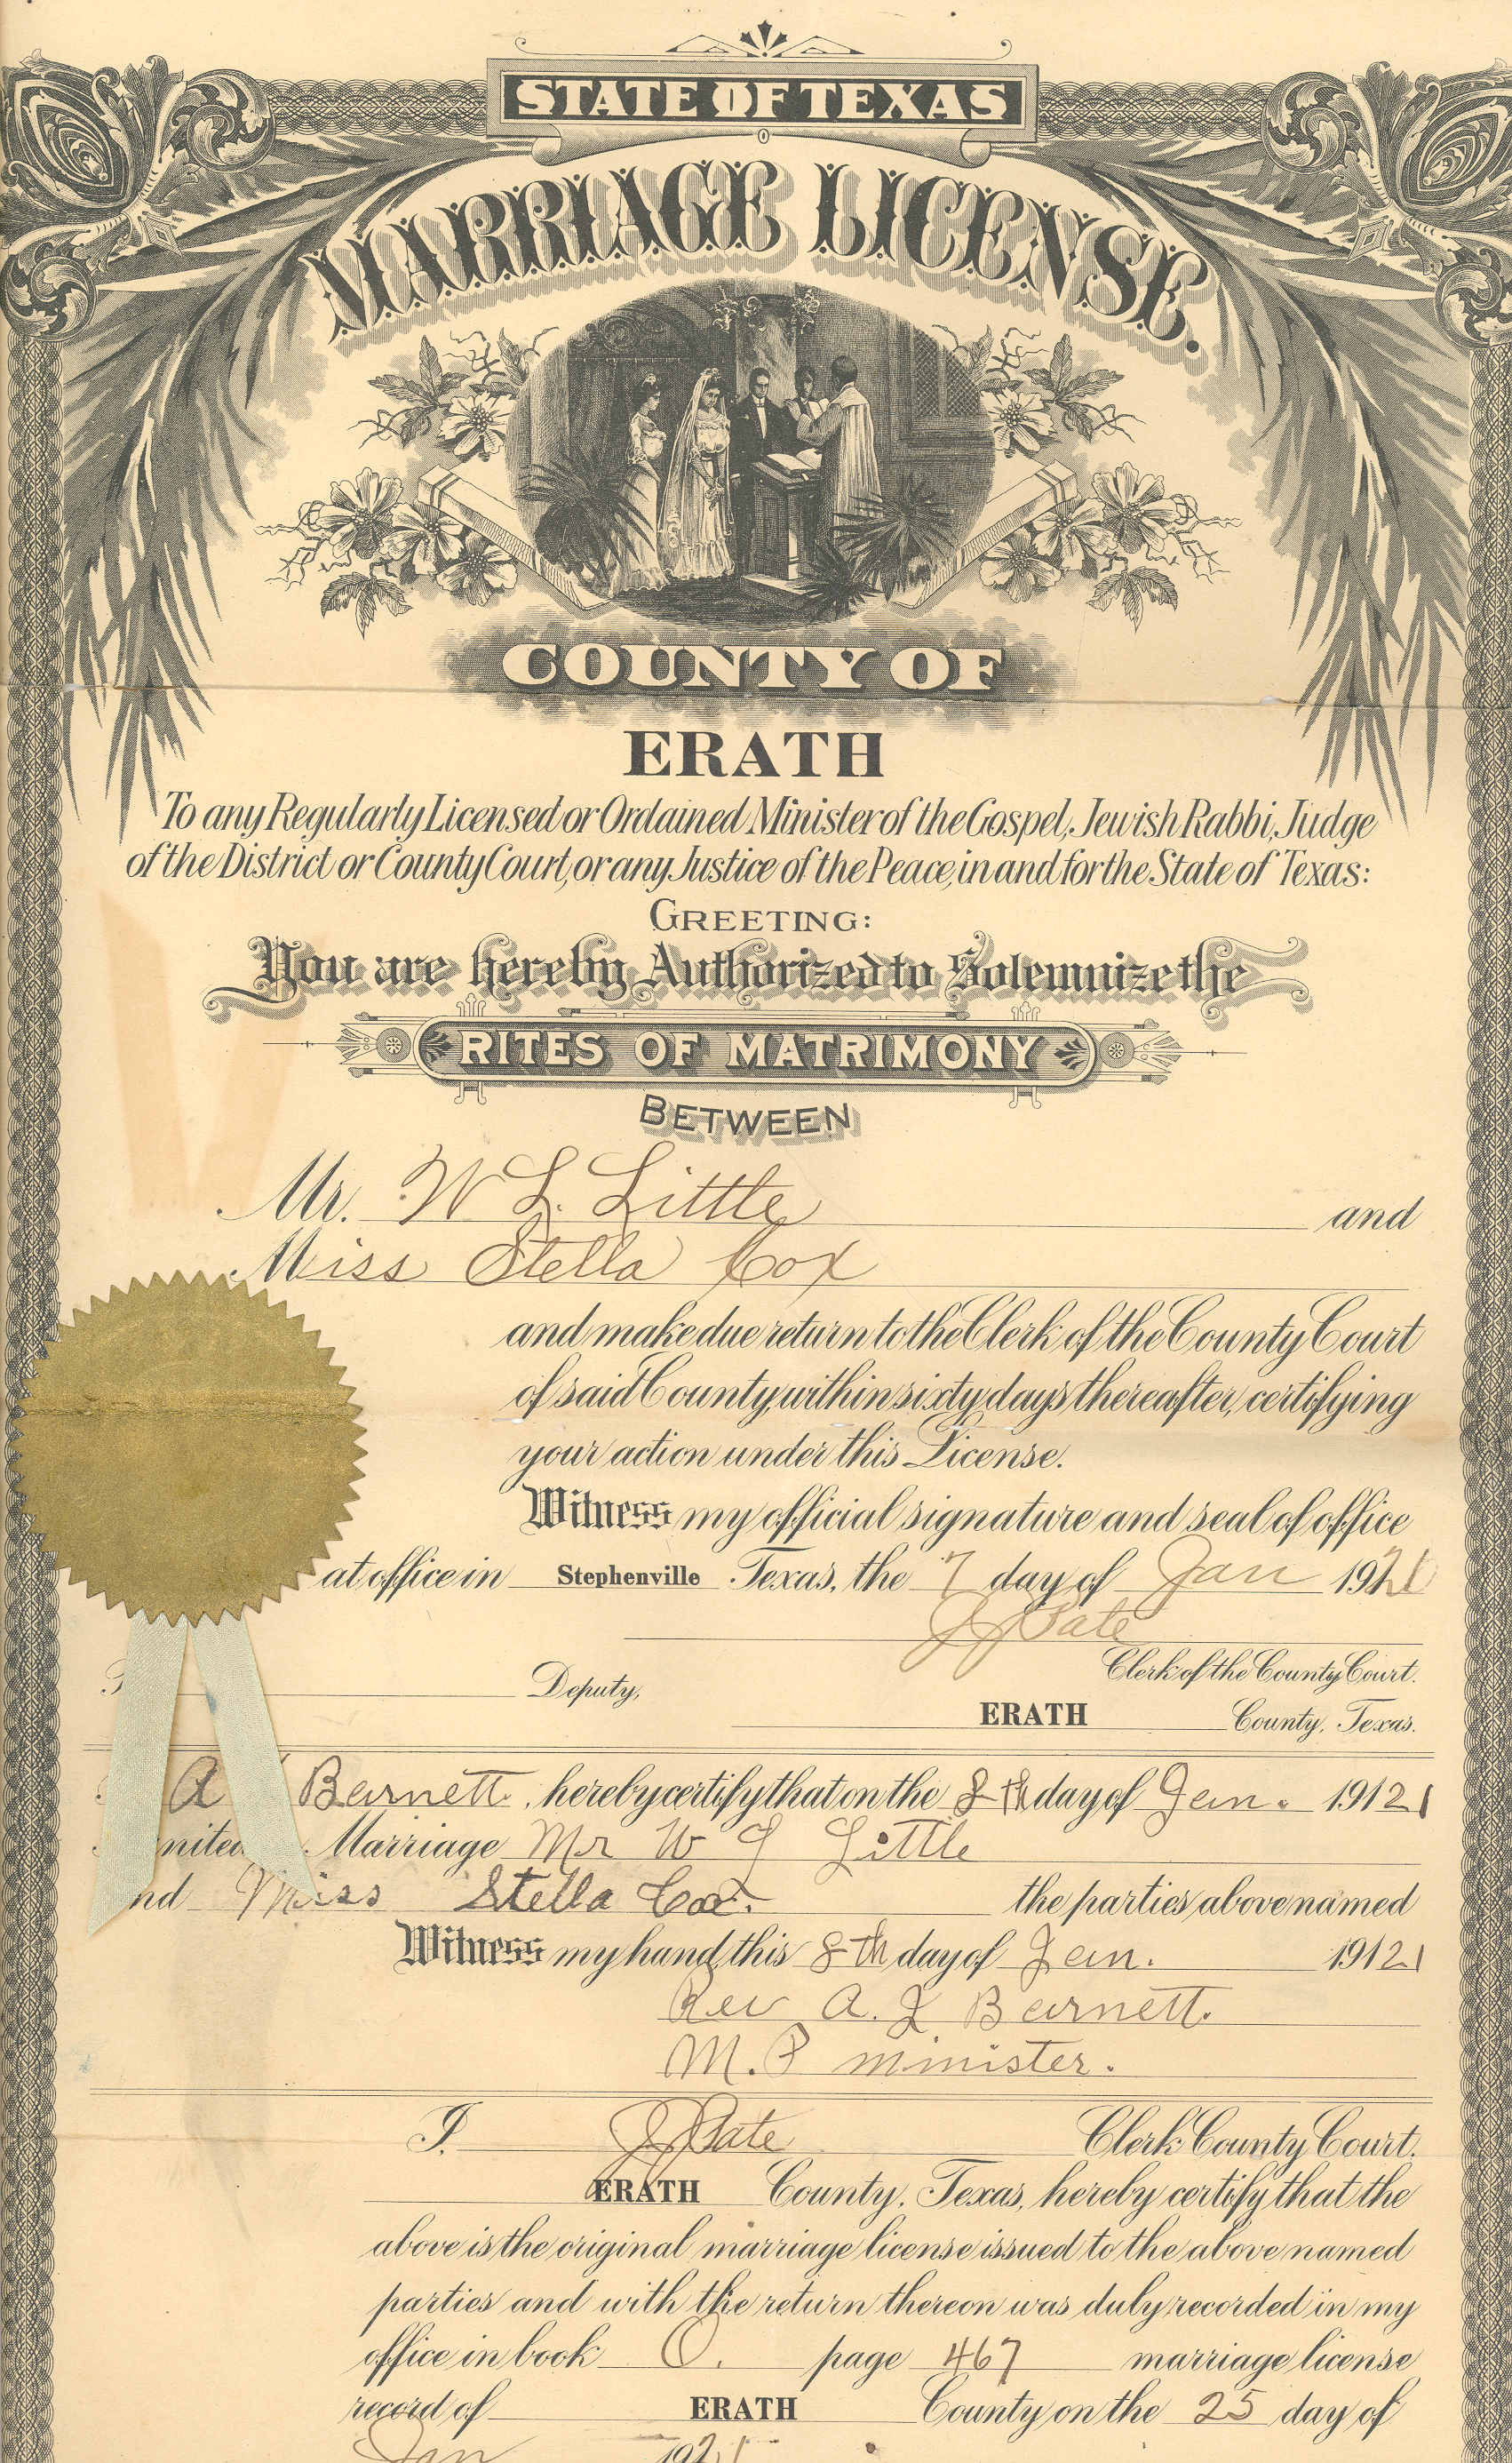 STATE OF TEXAS
MARRIAGE LICENSE.
COUNTY OF
ERATH
To any Regularly Licensed or Ordained Minister of the Gospel, Jewish Rabbi, Judge
of the District or County Court, or any Justice of the Peace, in and for the State of Texas:
GREETING:
You are hereby Authorized to Solemnize the
RITES OF MATRIMONY
BETWEEN
Mr. W L. Little and
Miss Stella Cox
and make due return to the Clerk of the County Court
of said County, within sixty days thereafter, certifying
your action under this License.
Witness my official signature and seal of office
at office in Stephenville Texas, the 7 day of Jan 1921
J J Pate
Clerk of the County Court.
Deputy,
ERATH County, Texas.
A Barnett, hereby certify that on the 8th day of Jan. 19121
Marriage Mr W L Little
Miss Stella Cox. the parties above named
Witness my hand, this 8th day of Jan. 19121
Rev A. J Barnett.
M. P minister.
I. J J Pate Clerk County Court.
ERATH County, Texas, hereby certify that the
above is the original marriage license issued to the above named
parties and with the return thereon was duly recorded in my
office in book O. page 467 marriage license
record of ERATH County on the 25 day of
Jan 1921